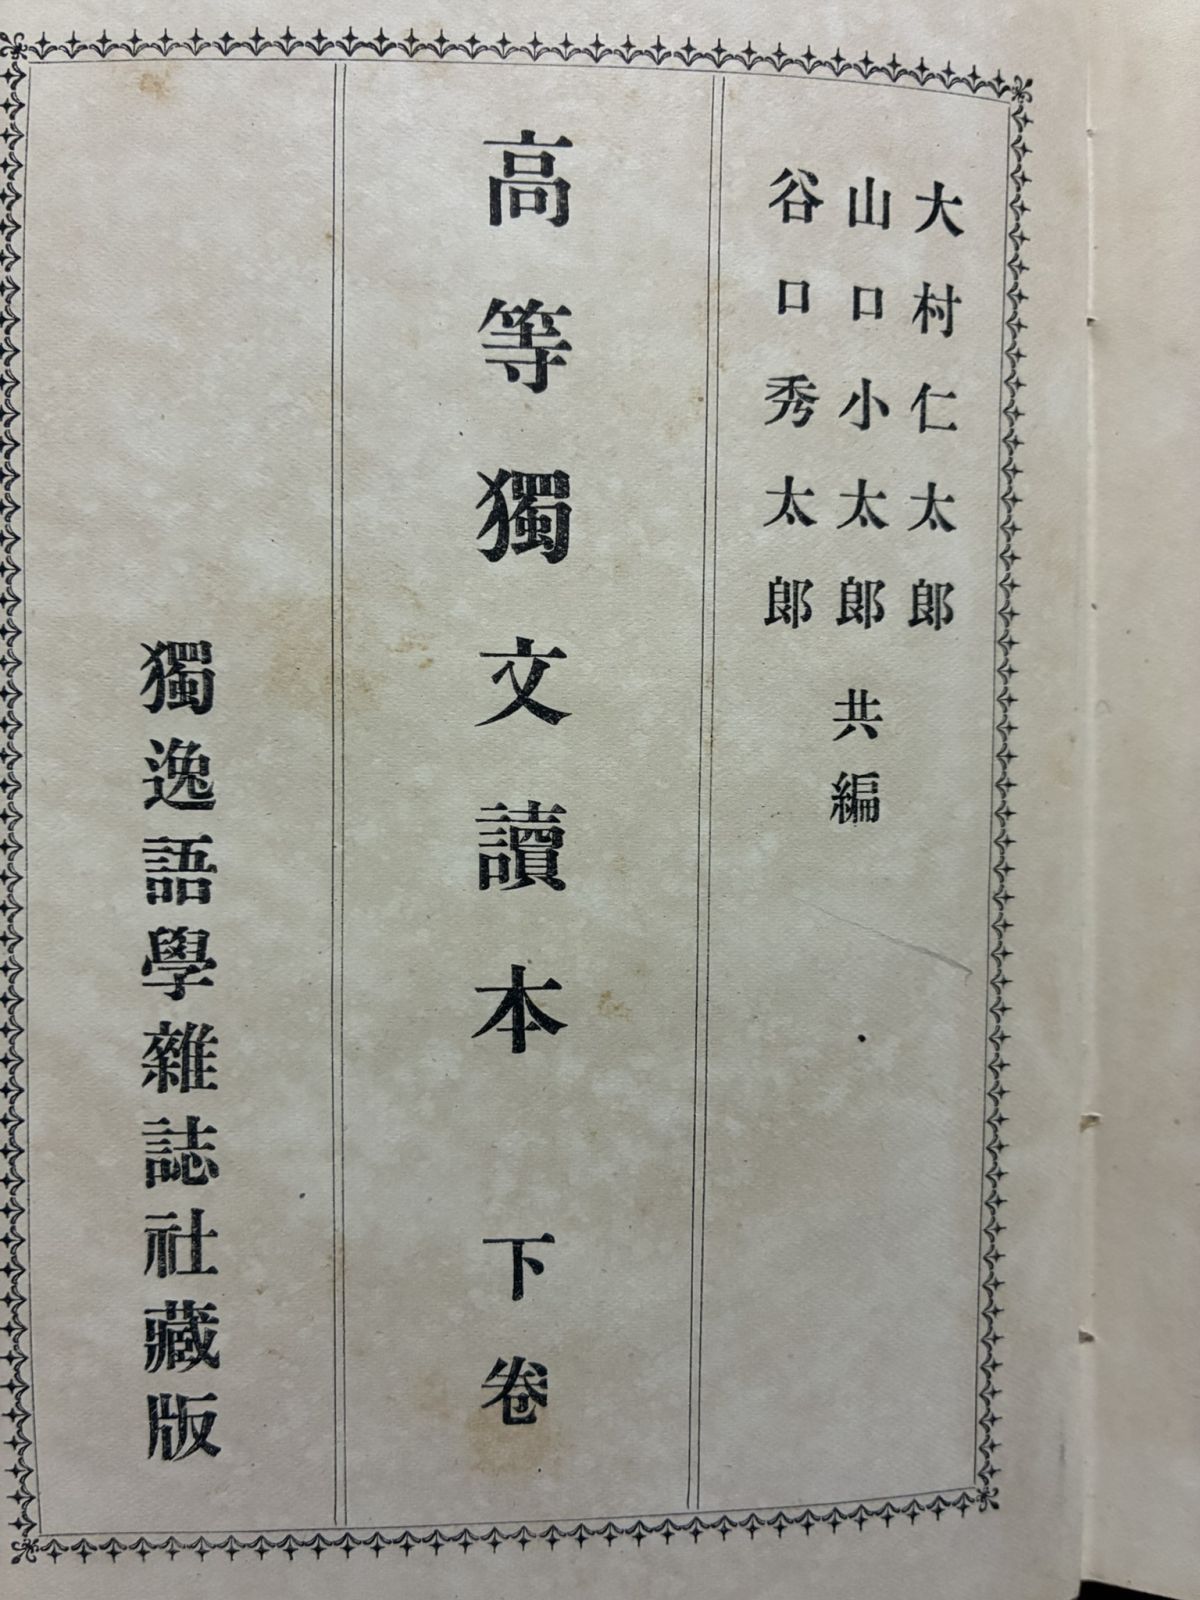 大村仁太郎
山口小太郎 共編
谷口秀太郎
高等獨文讀本 下卷
獨逸語學雜誌社藏版